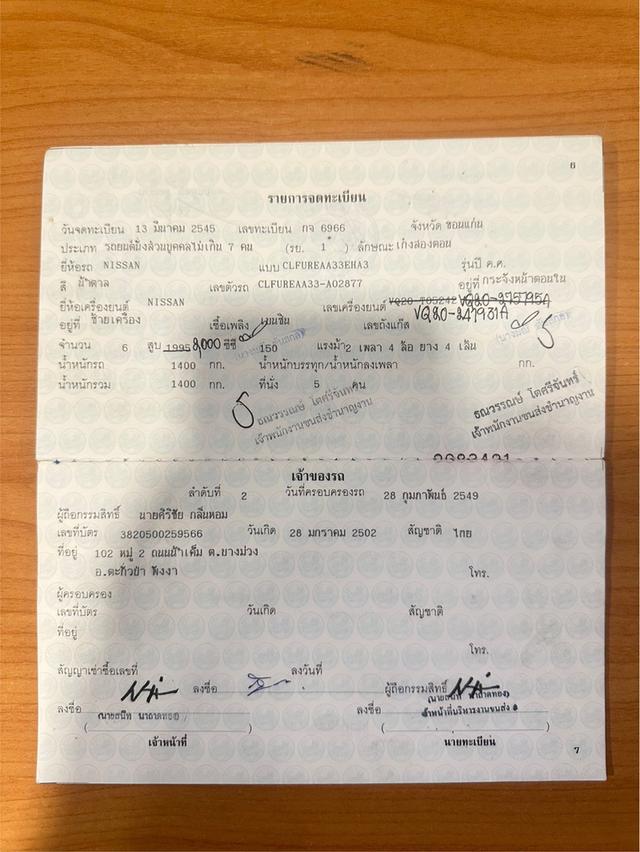 6
รายการจดทะเบียน
วันจดทะเบียน 13 มีนาคม 2545 เลขทะเบียน กจ 6966 จังหวัด ขอนแก่น
ประเภท รถยนต์นั่งส่วนบุคคลไม่เกิน 7 คน (รย. 1 ) ลักษณะ เก๋งสองตอน
ยี่ห้อรถ NISSAN แบบ CLFUREAA33EHA3 รุ่นปี ค.ศ.
สี น้ำตาล เลขตัวรถ CLFUREAA33-A02877 อยู่ที่ กระจังหน้าตอนใน
ยี่ห้อเครื่องยนต์ NISSAN เลขเครื่องยนต์ VQ20-T05242 VQ20-275795A
VQ20-247931A
อยู่ที่ ซ้ายเครื่อง เชื้อเพลิง เบนซิน เลขถังแก๊ส
จำนวน 6 สูบ 1995 2,000 ซีซี 150 แรงม้า 2 เพลา 4 ล้อ ยาง 4 เส้น
น้ำหนักรถ 1400 กก. น้ำหนักบรรทุก/น้ำหนักลงเพลา กก.
น้ำหนักรวม 1400 กก. ที่นั่ง 5 คน
ธณวรรณษ์ โตศรีจันทร์
เจ้าพนักงานขนส่งชำนาญงาน
ธณวรรณษ์ โตศรีจันทร์
เจ้าพนักงานขนส่งชำนาญงาน
เจ้าของรถ
ลำดับที่ 2 วันที่ครอบครองรถ 28 กุมภาพันธ์ 2549
ผู้ถือกรรมสิทธิ์ นายศิริชัย กลิ่นหอม
เลขที่บัตร 3820500259566 วันเกิด 28 มกราคม 2502 สัญชาติ ไทย
ที่อยู่ 102 หมู่ 2 ถนนน้ำเค็ม ต.บางม่วง
อ.ตะกั่วป่า พังงา โทร.
ผู้ครอบครอง
เลขที่บัตร วันเกิด สัญชาติ
ที่อยู่
โทร.
สัญญาเช่าซื้อเลขที่ ลงวันที่
ลงชื่อ ผู้ถือกรรมสิทธิ์
ลงชื่อ ลงชื่อ
เจ้าหน้าที่ นายทะเบียน
7